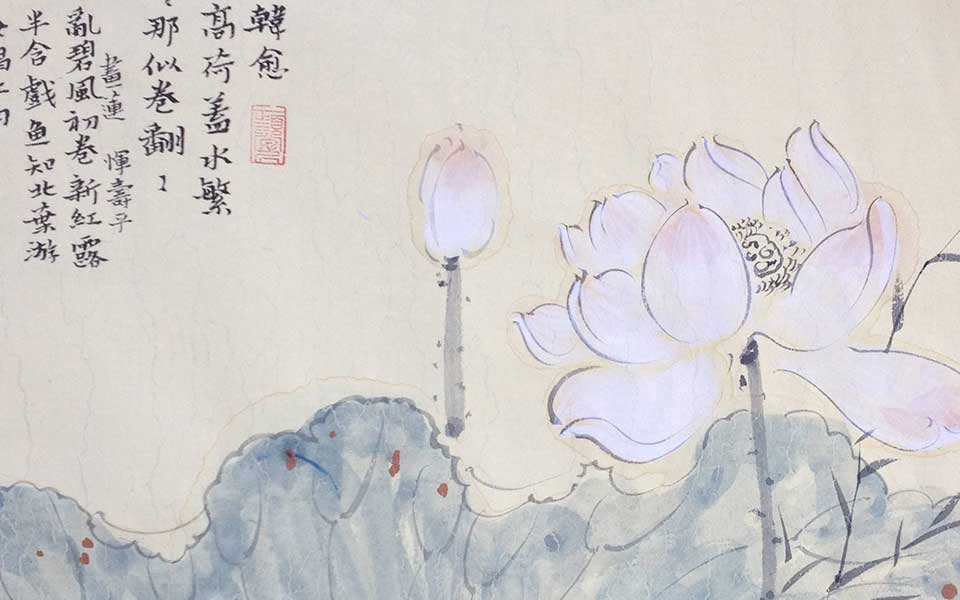 韓愈
髙荷蓋水繁
那似卷翻〻
畫蓮 惲壽平
亂碧風初卷新紅露
半含戲魚知北葉游